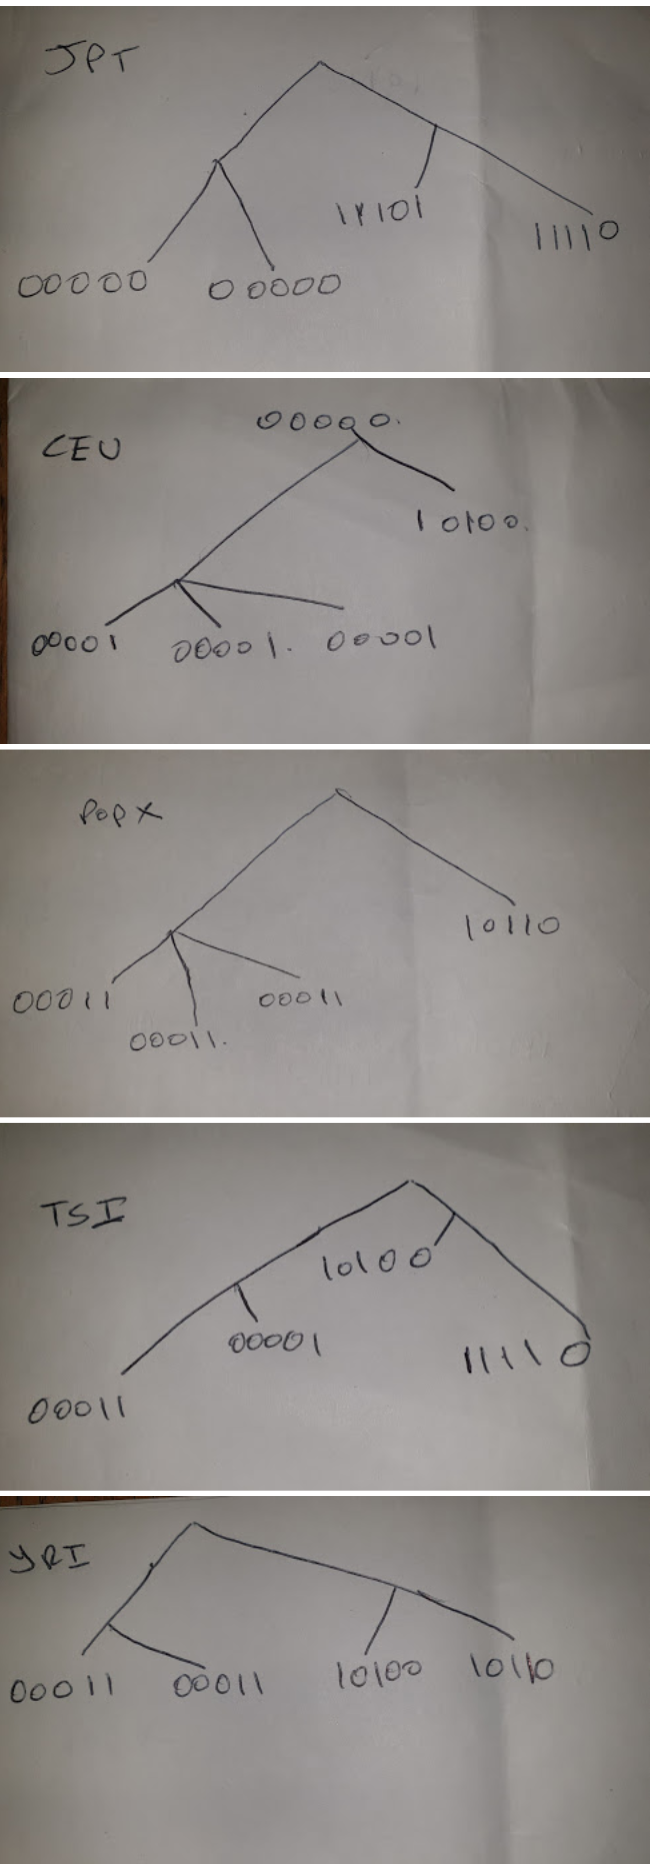 JPT
11101
11110
00000 00000
00000.
CEU
10100.
00001 00001. 00001
POP X
10110
00011 00011
00011.
TSI
10100
00001
11110
00011
YRI
00011 00011 10100 10110